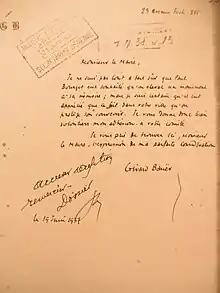 Monsieur le Maire,
Je ne suis pas tout à fait sûr que Paul
Bourget eût souhaité qu'on élevât un monument
à sa mémoire ; mais je suis certain qu'il eût
apprécié que le fût dans votre ville qu'on
son souvenir. Je vous donne donc bien
volontiers mon adhésion à votre Comité.
Je vous prie de trouver ici, Monsieur
le Maire, l'expression de ma parfaite considération
Gérard Bauër
accuser réception
remercier
Dossier
le 19 Juin 1957